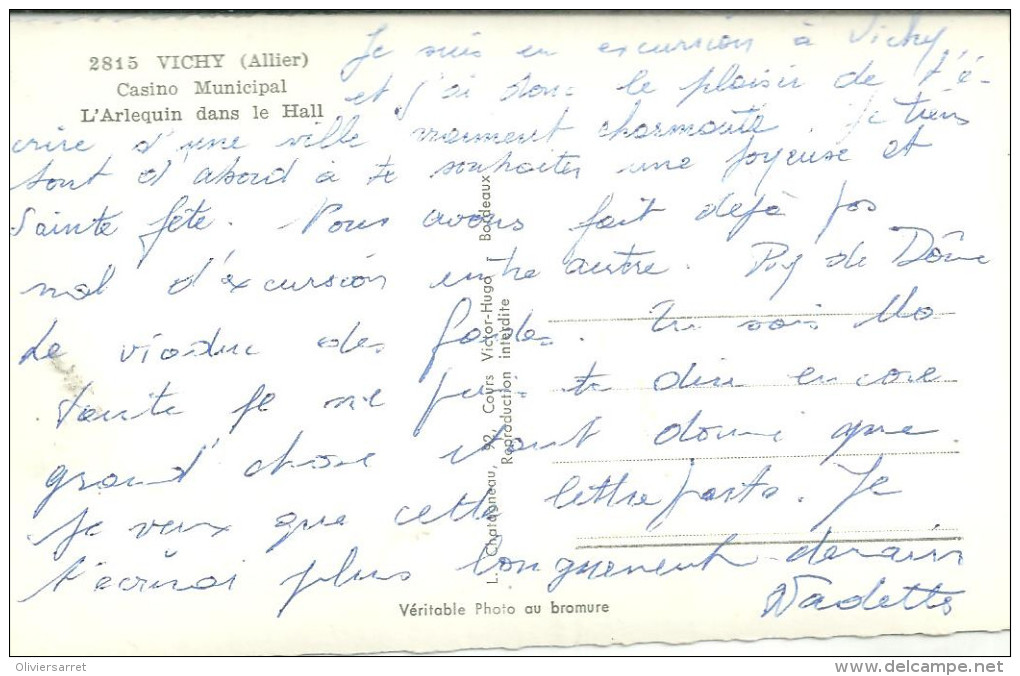 2815 VICHY (Allier)
Casino Municipal
L'Arlequin dans le Hall
Je suis en excursion à Vichy
et j'ai donc le plaisir de t'é-
crire d'une ville vraiment charmante. Je tiens
tout d'abord à te souhaiter une joyeuse et
Sainte fête. Nous avons fait déjà pas
mal d'excursion entre autre. Puy de Dôme
Le viaduc des fades. Tu sais Ma
tante je ne puis te dire encore
grand chose étant donné que
je veux que cette lettre parte. Je
t'écrirai plus longuement demain
L. Chatagneau, 92, Cours Victor-Hugo - Bordeaux
Reproduction interdite
Véritable Photo au bromure
Oliviersarret
www.delcampe.net